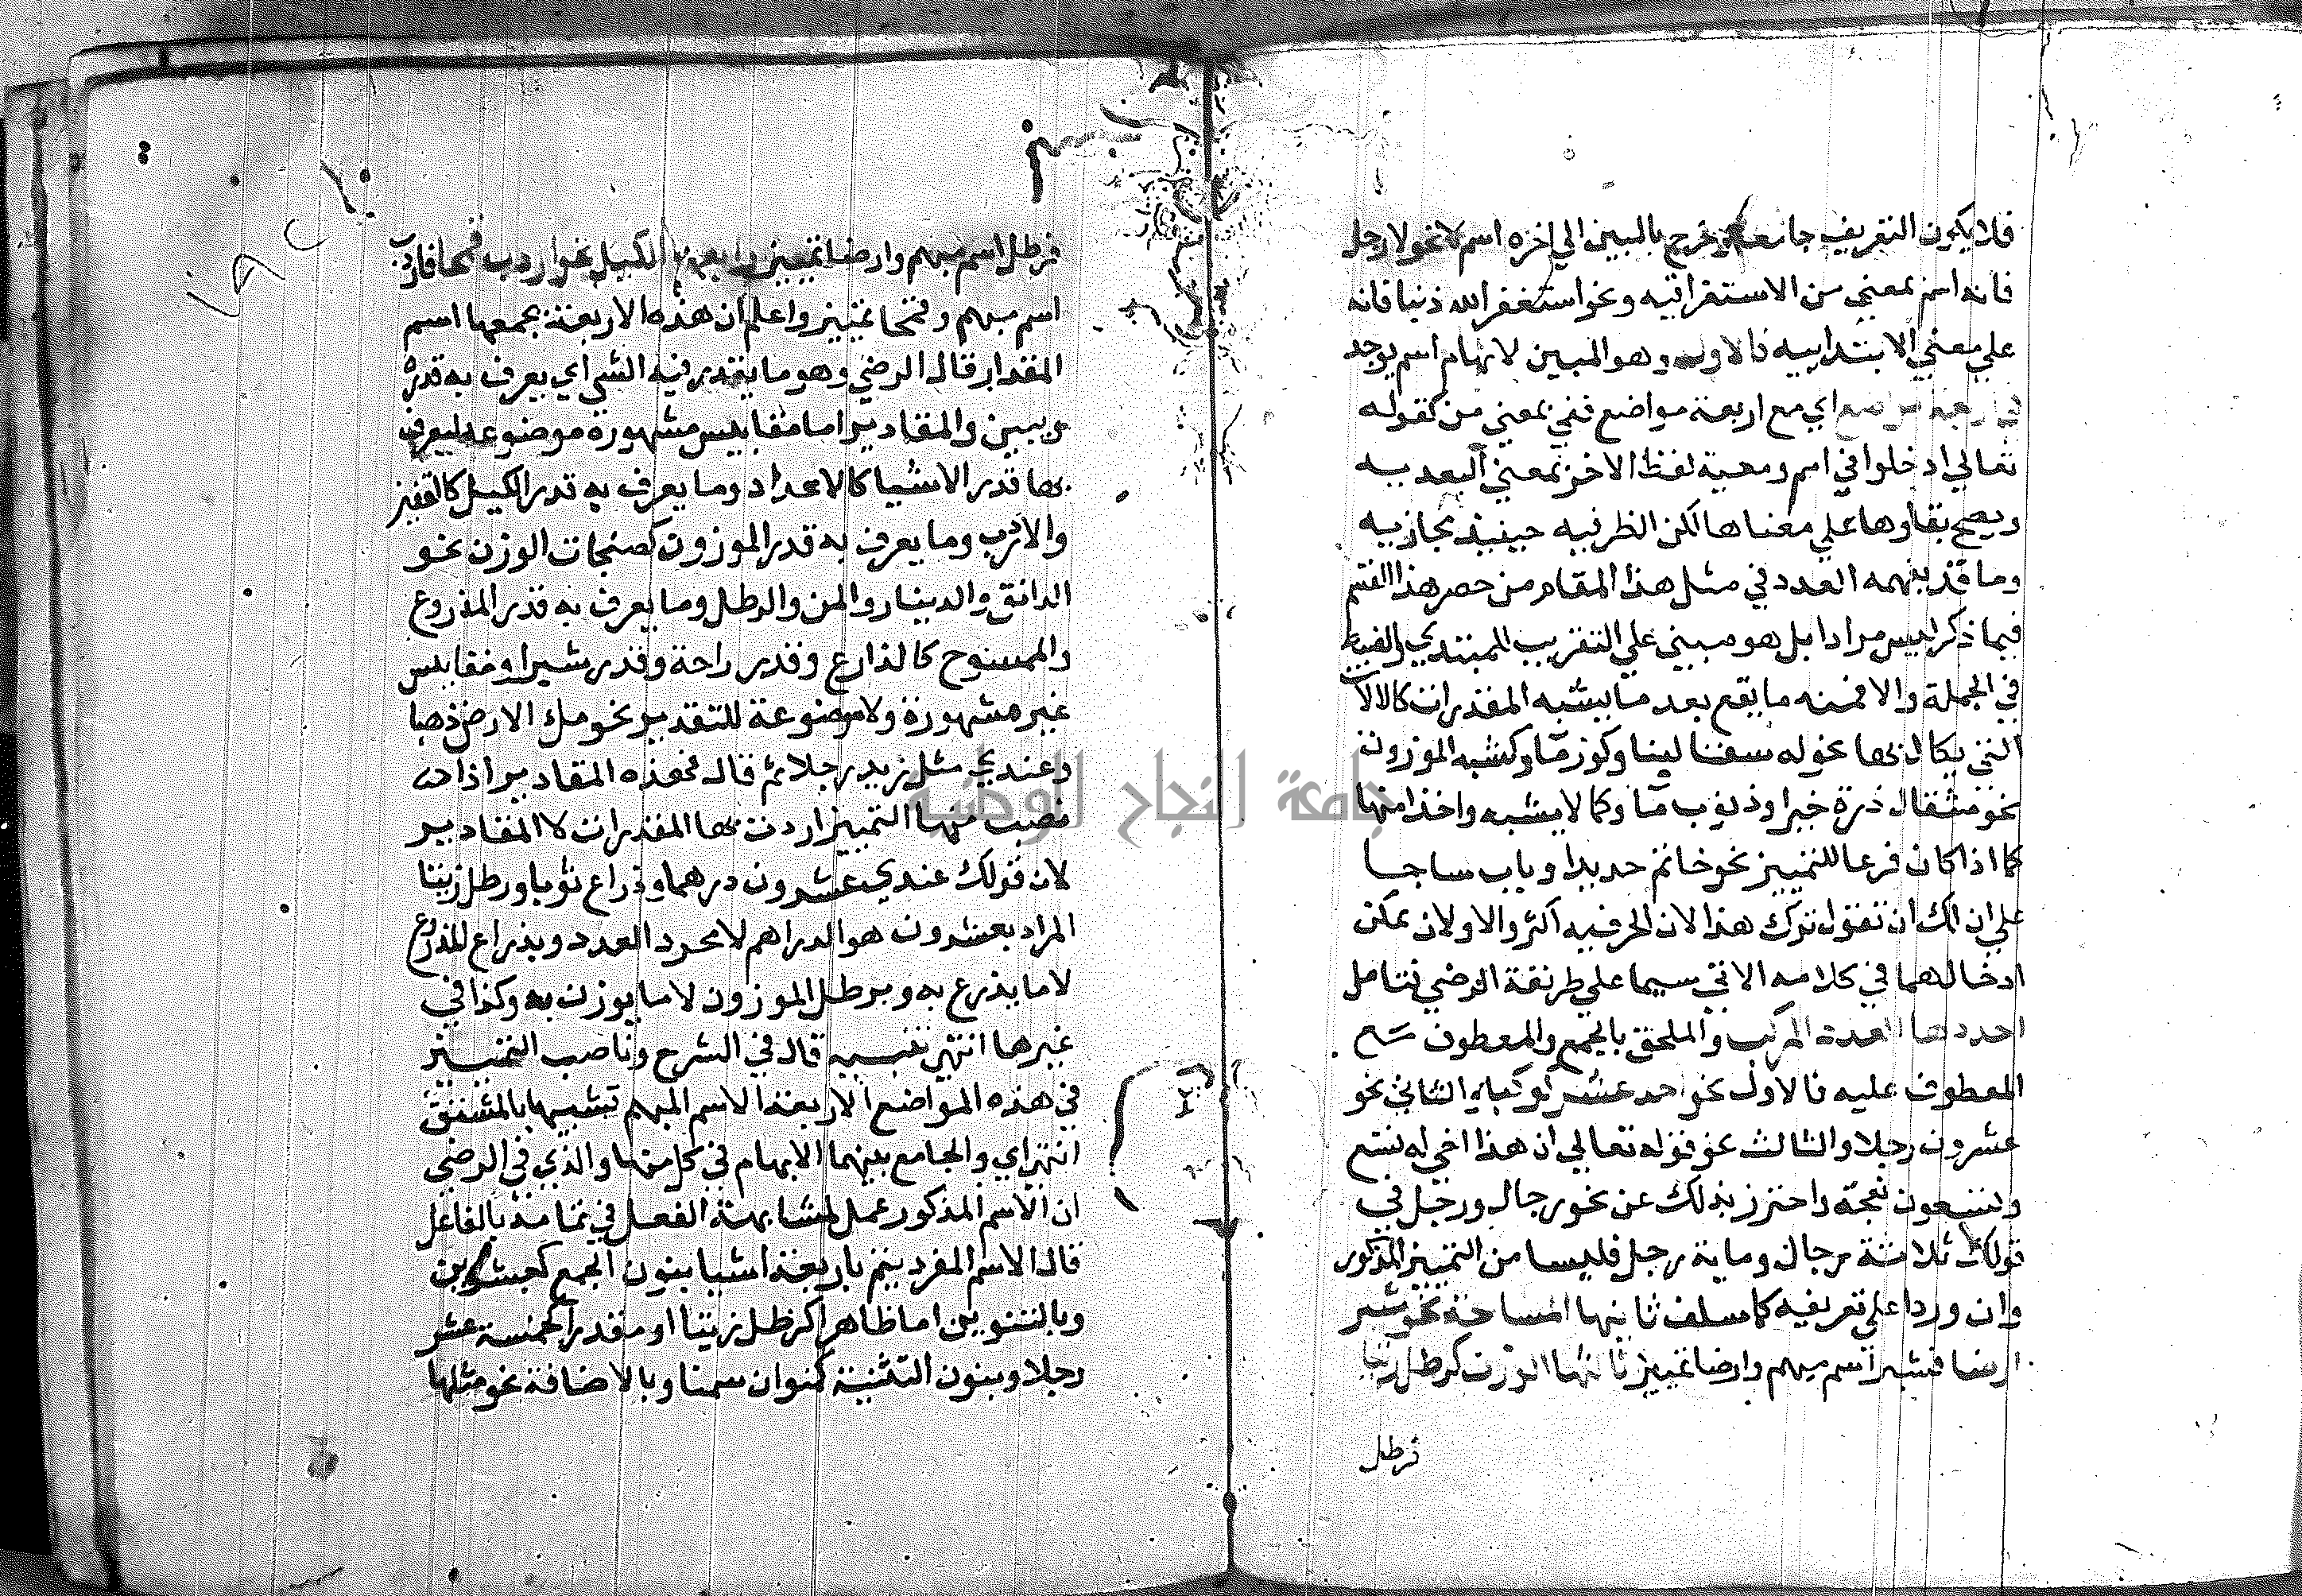 فلا يكون التعريف جامعا وخرج بالمبين الي اخره اسم لا نحو لا رجل
فانه اسم بمعني من الاستغراقيه ونحو استغفر الله ذنبا فانه
علي معني الابتدائيه فالاول وهو المبين لابهام اسم يوجد
اي مع اربعة مواضع ففي بمعني من كقوله
تعالي ادخلوا في امم ومعية لفظ الاخر بمعني البعديه
ويصح بقاوها علي معناها لكن الظرفيه حينيذ مجازيه
وما قد يفهمه العدد في مثل هذا المقام من حصر هذا القسم
فيما ذكر ليس مرادا بل هو مبني علي التقريب للمبتدي والغيبة
في الجملة والا فمنه ما يقع بعد ما يشبه المقدرات كالالات
التي يكال بها نحو له سقنا لبنا وكوز مآ وكشبه الموزون
نحو مثقال ذرة خيرا وذنوب مآ وكما لا يشبه واخذا منها
كما اذا كان فرعا للتمييز نحو خاتم حديدا وباب ساجا
علي ان لك ان تقول ترك هذا لان الجر فيه اكثر والاولان يمكن
ادخالهما في كلامه الاتي سيما علي طريقة الرضي فتامل
احدها العدد المركب والملحق بالجمع والمعطوف مع
المعطوف عليه فالاول نحو احد عشر كوكبا والثاني نحو
عشرون رجلا والثالث نحو قوله تعالي ان هذا اخي له تسع
وتسعون نعجة واحترز بذلك عن نحو رجال ورجل في
قولك ثلاثة رجال وماية رجل فليسا من التمييز المذكور
وان وردا علي تعريفه كما سلف ثانيها المساحة نحو شبر
ارضا فشبر اسم مبهم وارضا تمييز ثالثها الوزن كرطل زيتا
فرطل
فرطل اسم مبهم وارضا تمييز رابعها الكيل نحو اردب قمحا فاردب
اسم مبهم وقمحا تمييز واعلم ان هذه الاربعة يجمعها اسم
المقدار قال الرضي وهو ما يقدر فيه الشي اي يعرف به قدره
ويبين والمقادير اما مقاييس مشهورة موضوعه ليعرف
بها قدر الاشيا كالاعداد وما يعرف به قدر الكيل كالقفيز
والاردب وما يعرف به قدر الموزون كصنجات الوزن نحو
الدانق والدينار والمن والرطل وما يعرف به قدر المذروع
والممسوح كالذارع وقدر راحة وقدر شبر او مقاييس
غير مشهورة ولا موضوعة للتقدير نحو مل الارض ذهبا
وعندي مثل زيد رجلا ثم قال فهذه المقادير اذا
نصبت منها التمييز اردت بها المقدرات لا المقادير
لان قولك عندي عشرون درهما وذراع ثوبا ورطل زيتا
المراد بعشرون هو الدراهم لا مجرد العدد وبذراع المذروع
لا ما يذرع به وبرطل الموزون لا ما يوزن به وكذا في
غيرها انتهي تنبيه قال في الشرح وناصب التمييز
في هذه المواضع الاربعة الاسم المبهم تشبيها بالمشتق
انتهي اي والجامع بينهما الابهام في كل منها والذي في الرضي
ان الاسم المذكور عمل لمشابهته الفعل في تمامه بالفاعل
قال الاسم المفرد يتم باربعة اشيا بنون الجمع كعشرين
وبالتنوين اما ظاهرا كرطل زيتا او مقدرا كخمسة عشر
رجلا وبنون التثنية كمنوان سمنا وبالاضافة نحو مثلها
جامعة النجاح الوطنية